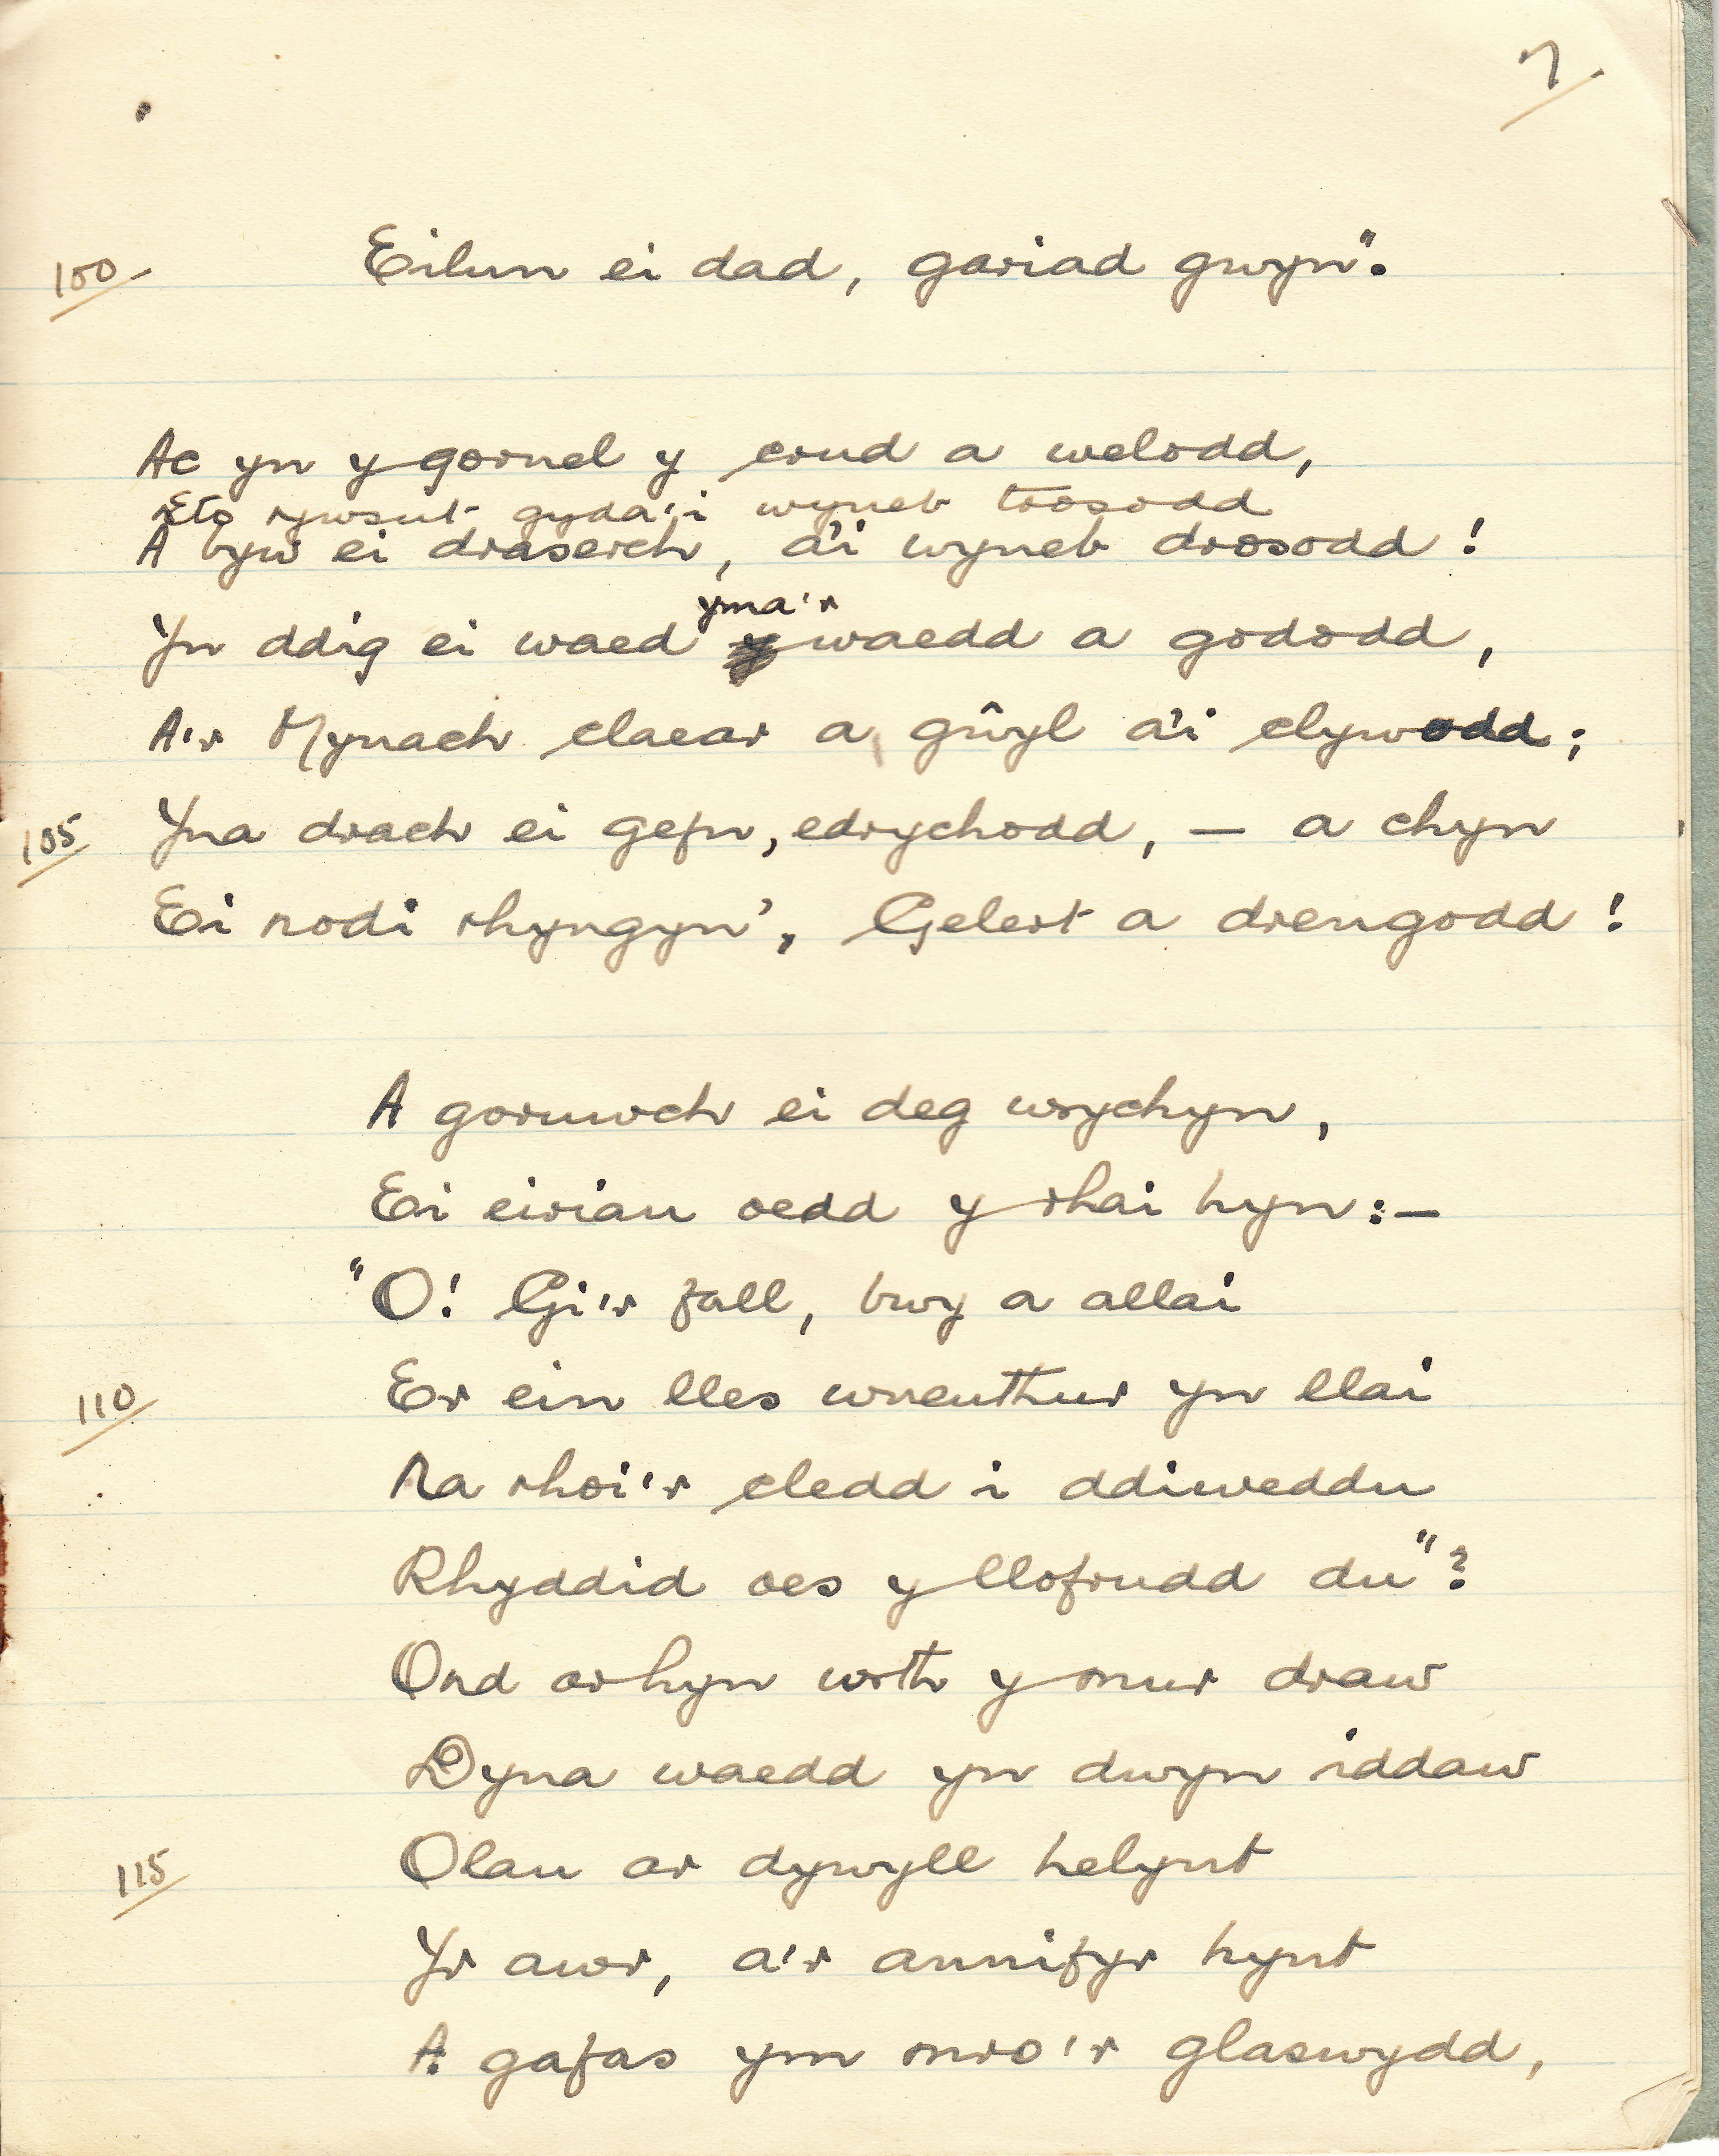 7.
100 Eilun ei dad, gariad gwyn".
Ac yn y gornel y crud a welodd,
Eto rywsut gyda'i wyneb trosodd
A byw ei draserch, a'i wyneb drosodd!
yma'r
Yn ddig ei waed y waedd a gododd,
A'r Mynach claear a gŵyl a'i clywodd;
105 Yna drach ei gefn, edrychodd, — a chyn
Ei nodi rhyngyn', Gelert a drengodd!
A goruwch ei deg wrychyn,
Ei eiriau oedd y rhai hyn:—
"O! Gi'r fall, bwy a allai
110 Er ein lles wneuthur yn llai
Na rhoi'r cledd i ddiweddu
Rhyddid oes y llofrudd du"?
Ond arhyn wrth y mur draw
Dyna waedd yn dwyn iddaw
115 Olau ar dywyll helynt
Yr awr, a'r annifyr hynt
A gafas ym mro'r glaswydd,